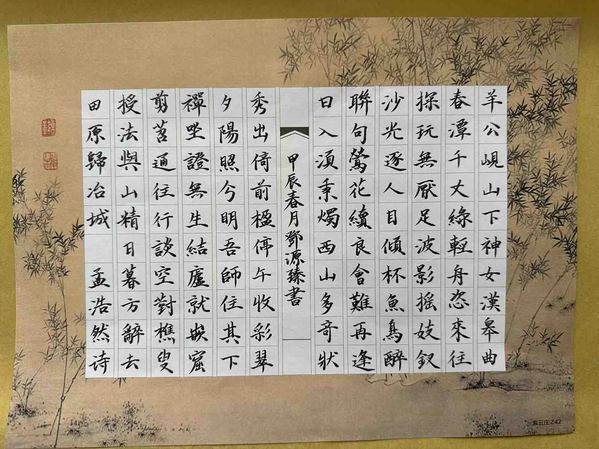 羊公峴山下神女漢皋曲
春潭千丈綠輕舟恣來往
探玩無厭足波影搖妓釵
沙光逐人目傾杯魚鳥醉
聯句鶯花續良會難再逢
日入須秉燭西山多奇狀
甲辰春月鄧源臻書
秀出倚前楹停午收彩翠
夕陽照分明吾師住其下
禪坐證無生結廬就嵌窟
剪苕通往行談空對樵叟
授法與山精日暮方辭去
田原歸冶城 孟浩然诗